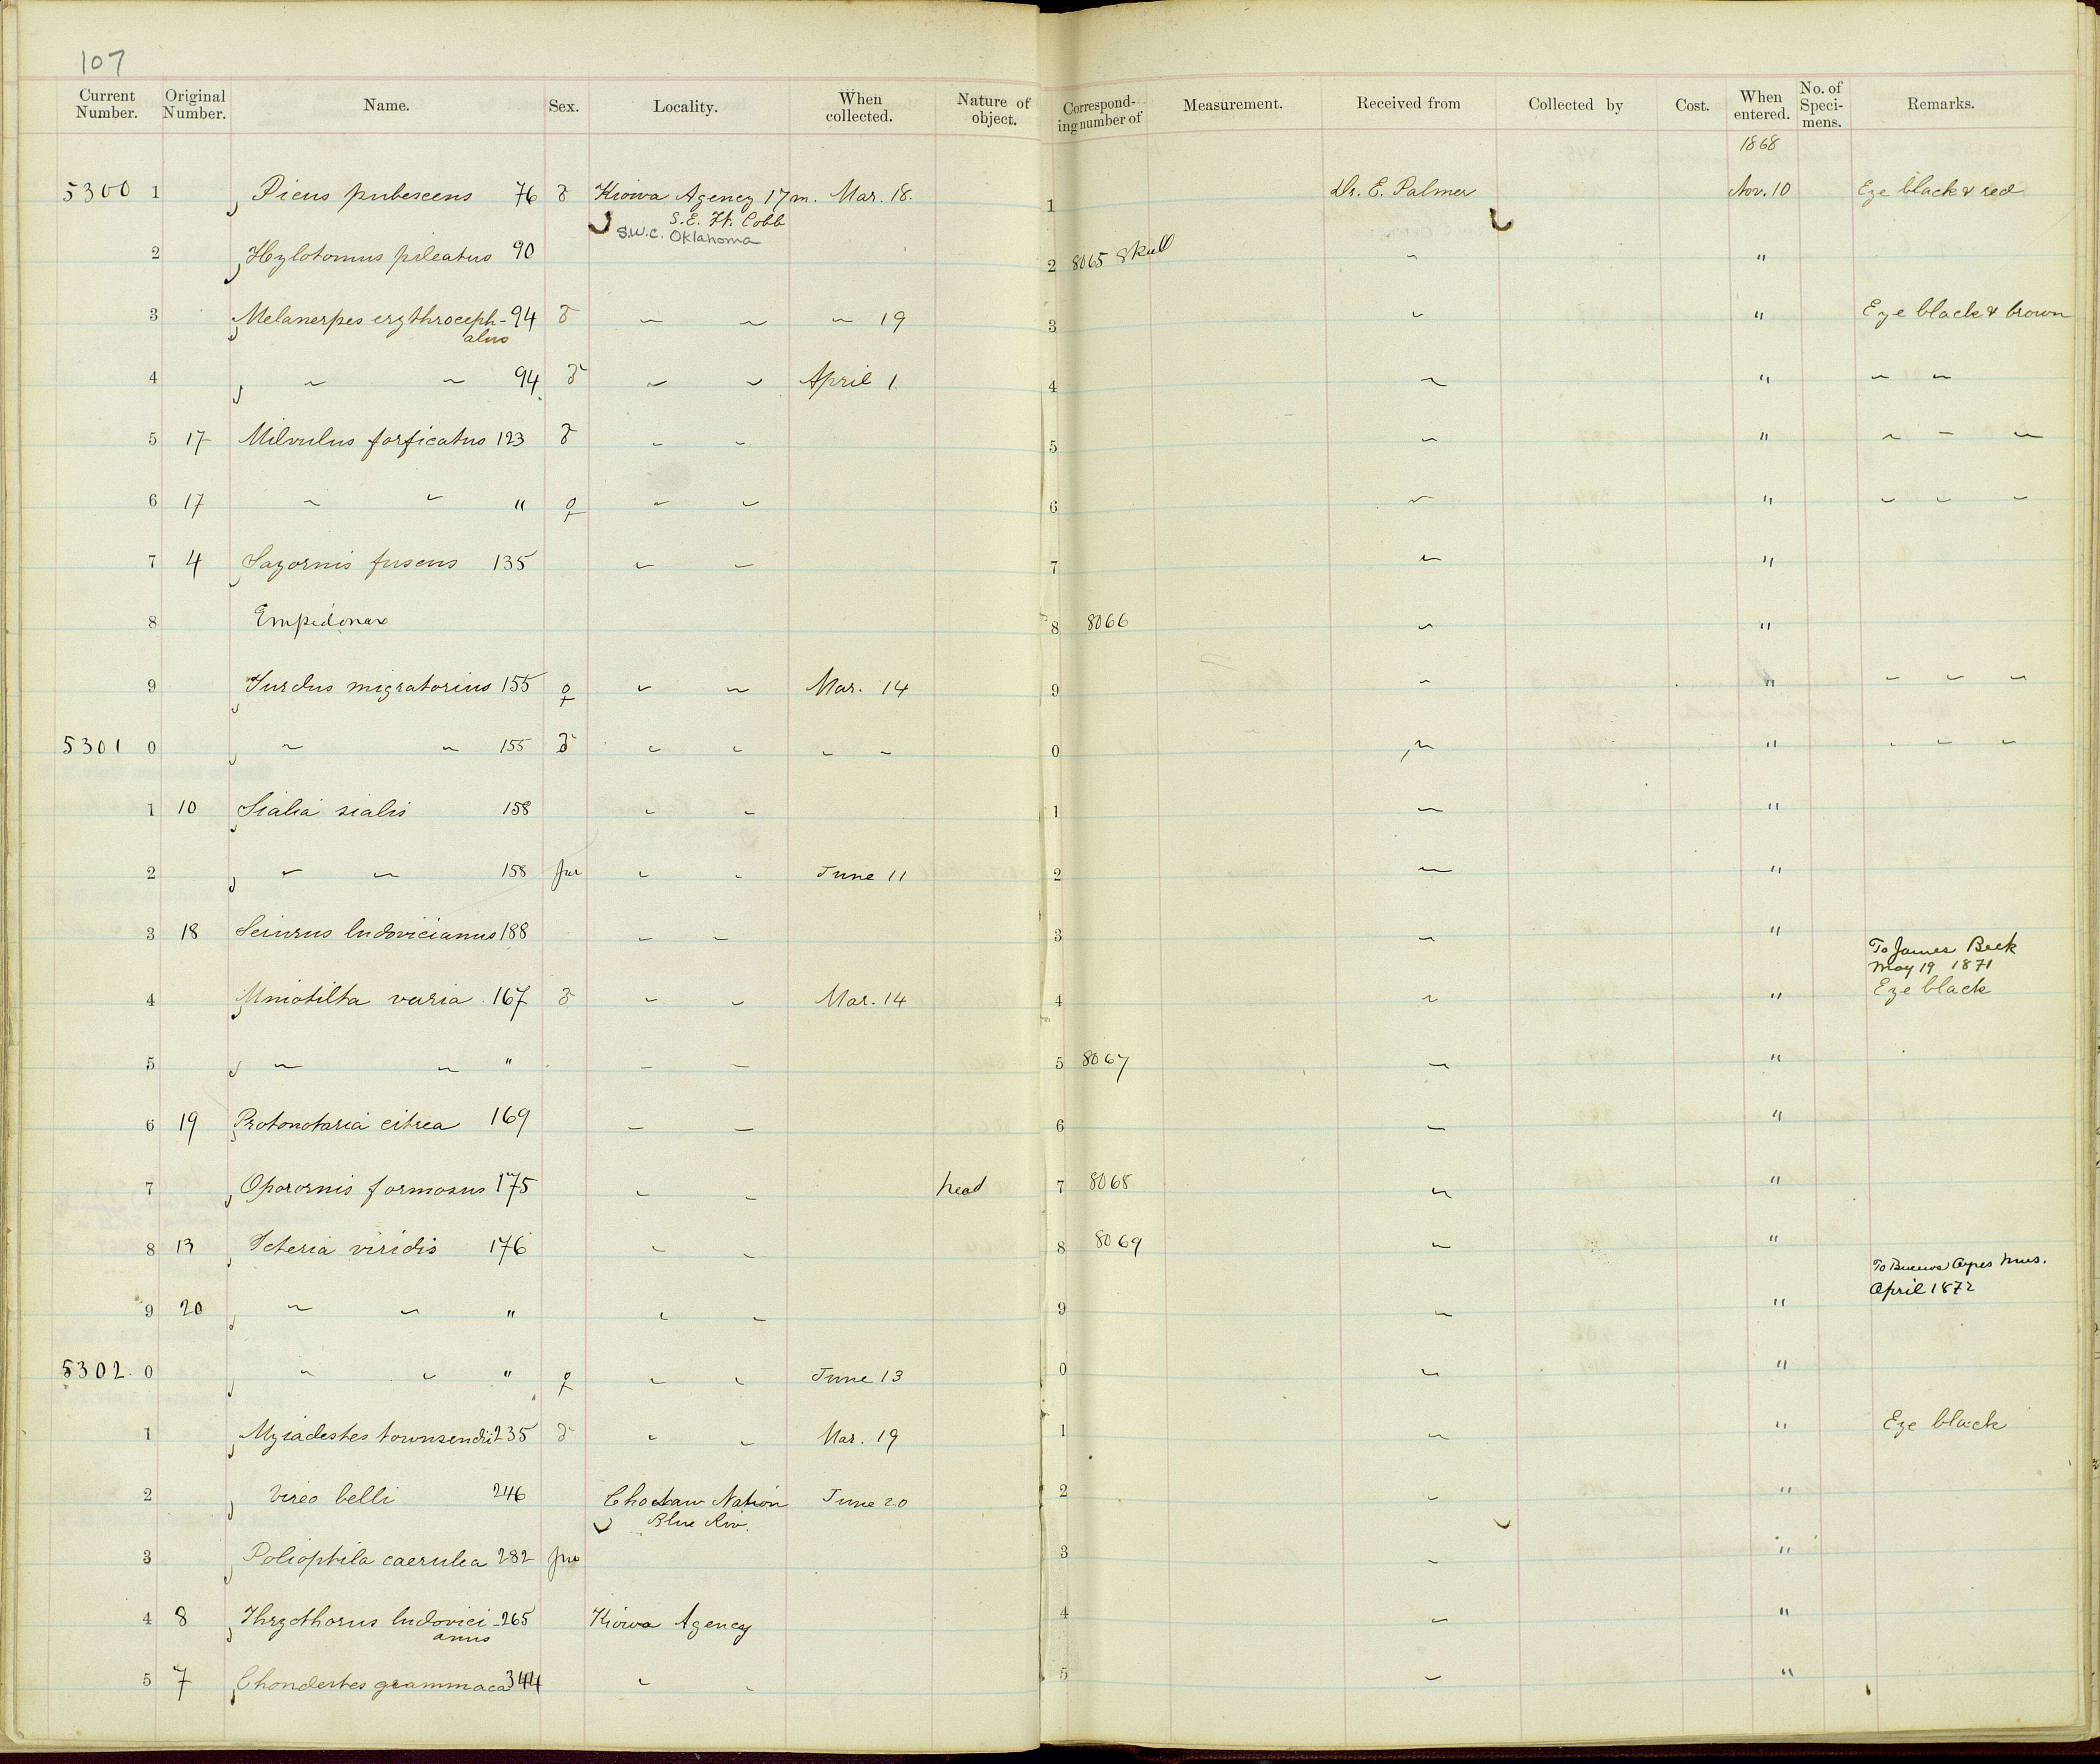 107
Current Number. Original Number. Name. Sex. Locality. When collected. Nature of object. Corresponding number of Measurement. Received from Collected by Cost. When entered. No. of Specimens. Remarks.
1868
5300 1 Picus pubescens 76 ♂ Kiowa Agency 17 m. Mar. 18. 1 Dr. E. Palmer Nov. 10 Eye black & red
S.E. Ft. Cobb
S.W.C. Oklahoma
2 Hylotomus pileatus 90 2 8065 Skull ~ "
3 Melanerpes erythroceph- 94 ♂ ~ ~ ~ 19 3 ~ " Eye black & brown
alus
4 ~ ~ 94 ♂ ~ ~ April 1 4 ~ " ~ ~
5 17 Milvulus forficatus 123 ♂ ~ ~ 5 ~ " ~ ~ ~
6 17 ~ ~ " ♀ ~ ~ 6 ~ " ~ ~ ~
7 4 Sayornis fuscus 135 ~ ~ 7 ~ "
8 Empidonax 8 8066 ~ "
9 Turdus migratorius 155 ♀ ~ ~ Mar. 14 9 ~ " ~ ~ ~
5301 0 ~ ~ 155 ♂ ~ ~ ~ ~ 0 ~ " ~ ~ ~
1 10 Sialia sialis 158 ~ ~ 1 ~ "
2 ~ ~ 158 juv ~ ~ June 11 2 ~ "
3 18 Seiurus ludovicianus 188 ~ ~ 3 ~ "
To James Beck
May 19 1871
4 Mniotilta varia 167 ♂ ~ ~ Mar. 14 4 ~ " Eye black
5 ~ ~ " ~ ~ 5 8067 ~ "
6 19 Protonotaria citrea 169 ~ ~ 6 ~ "
7 Oporornis formosus 175 ~ ~ head 7 8068 ~ "
8 13 Icteria viridis 176 ~ ~ 8 8069 ~ "
To Buenos Ayres Mus.
April 1872
9 20 ~ ~ " ~ ~ 9 ~ "
5302 0 ~ ~ " ♀ ~ ~ June 13 0 ~ "
1 Myiadestes townsendii 235 ♂ ~ ~ Mar. 19 1 ~ " Eye black
2 Vireo belli 246 Choctaw Nation June 20 2 ~ "
Blue Riv.
3 Polioptila caerulea 282 juv 3 ~ "
4 8 Thryothorus ludovici- 265 Kiowa Agency 4 ~ "
anus
5 7 Chondestes grammaca 344 ~ ~ 5 ~ "